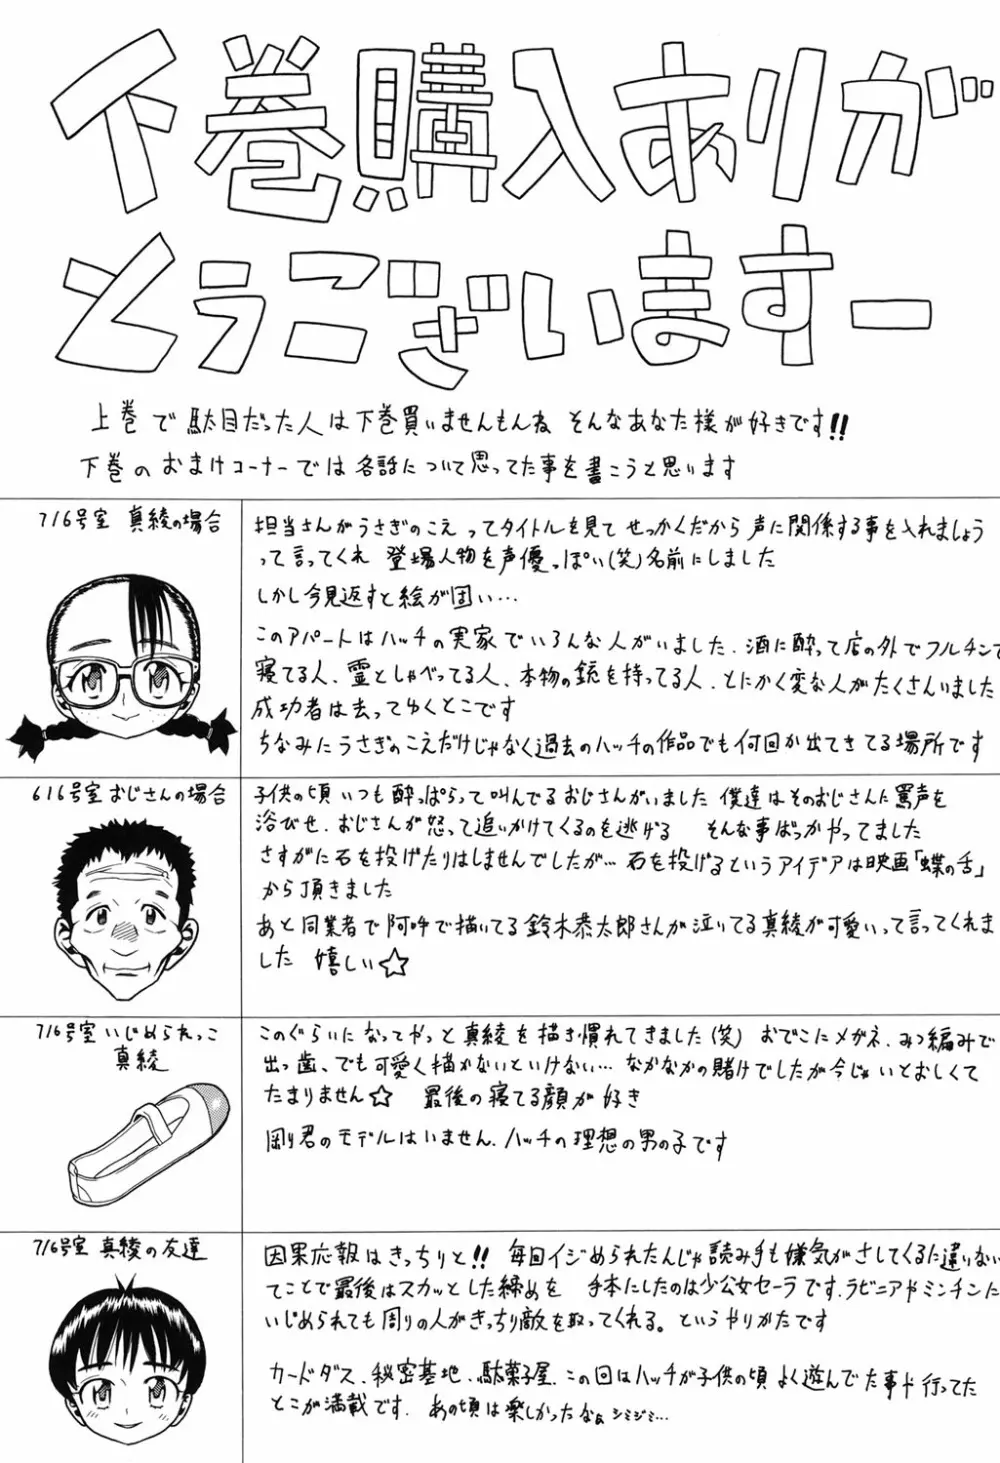 下巻購入ありが
とうございますー
上巻で駄目だった人は下巻買いませんもんね そんなあなた様が好きです!!
下巻のおまけコーナーでは各話について思ってた事を書こうと思います
716号室 真綾の場合
担当さんがうさぎのこえ ってタイトルを見て せっかくだから 声に関係する事を入れましょう
って言ってくれ 登場人物を声優っぽい(笑)名前にしました
しかし今見返すと絵が固い…
このアパートはハッチの実家でいろんな人がいました.酒に酔って店の外でフルチンで
寝てる人、霊としゃべってる人、本物の銃を持ってる人.とにかく変な人がたくさんいました
成功者は去ってゆくとこです
ちなみにうさぎのこえだけじゃなく過去のハッチの作品でも何回か出てきてる場所です
616号室おじさんの場合
子供の頃いつも酔っぱらって叫んでるおじさんがいました 僕達はそのおじさんに罵声を
浴びせ、おじさんが怒って追いかけてくるのを逃げる そんな事ばっかやってました
さすがに石を投げたりはしませんでしたが…石を投げるというアイデアは映画「蝶の舌」
から頂きました
あと同業者で阿吽で描いてる鈴木恭太郎さんが泣いてる真綾が可愛いって言ってくれま
した 嬉しい☆
716号室いじめられっこ
真綾
このぐらいになってやっと真綾を描き慣れてきました(笑) おでこにメガネ、みつ編みで
出っ歯、でも可愛く描かないといけない…なかなかの賭けでしたが今じゃいとおしくて
たまりません☆ 最後の寝てる顔が好き
剛君のモデルはいません.ハッチの理想の男の子です
716号室 真綾の友達
因果応報はきっちりと!! 毎回イジめられたんじゃ読み手も嫌気がさしてくるに違いない
てことで最後はスカッとした締めを 手本にしたのは少公女セーラです.ラビニアやミンチンに
いじめられても周りの人がきっちり敵を取ってくれる。というやりかたです
カードダス、秘密基地、駄菓子屋.この回はハッチが子供の頃よく遊んでた事や行ってた
とこが満載です.あの頃は楽しかったなぁ シミジミ…